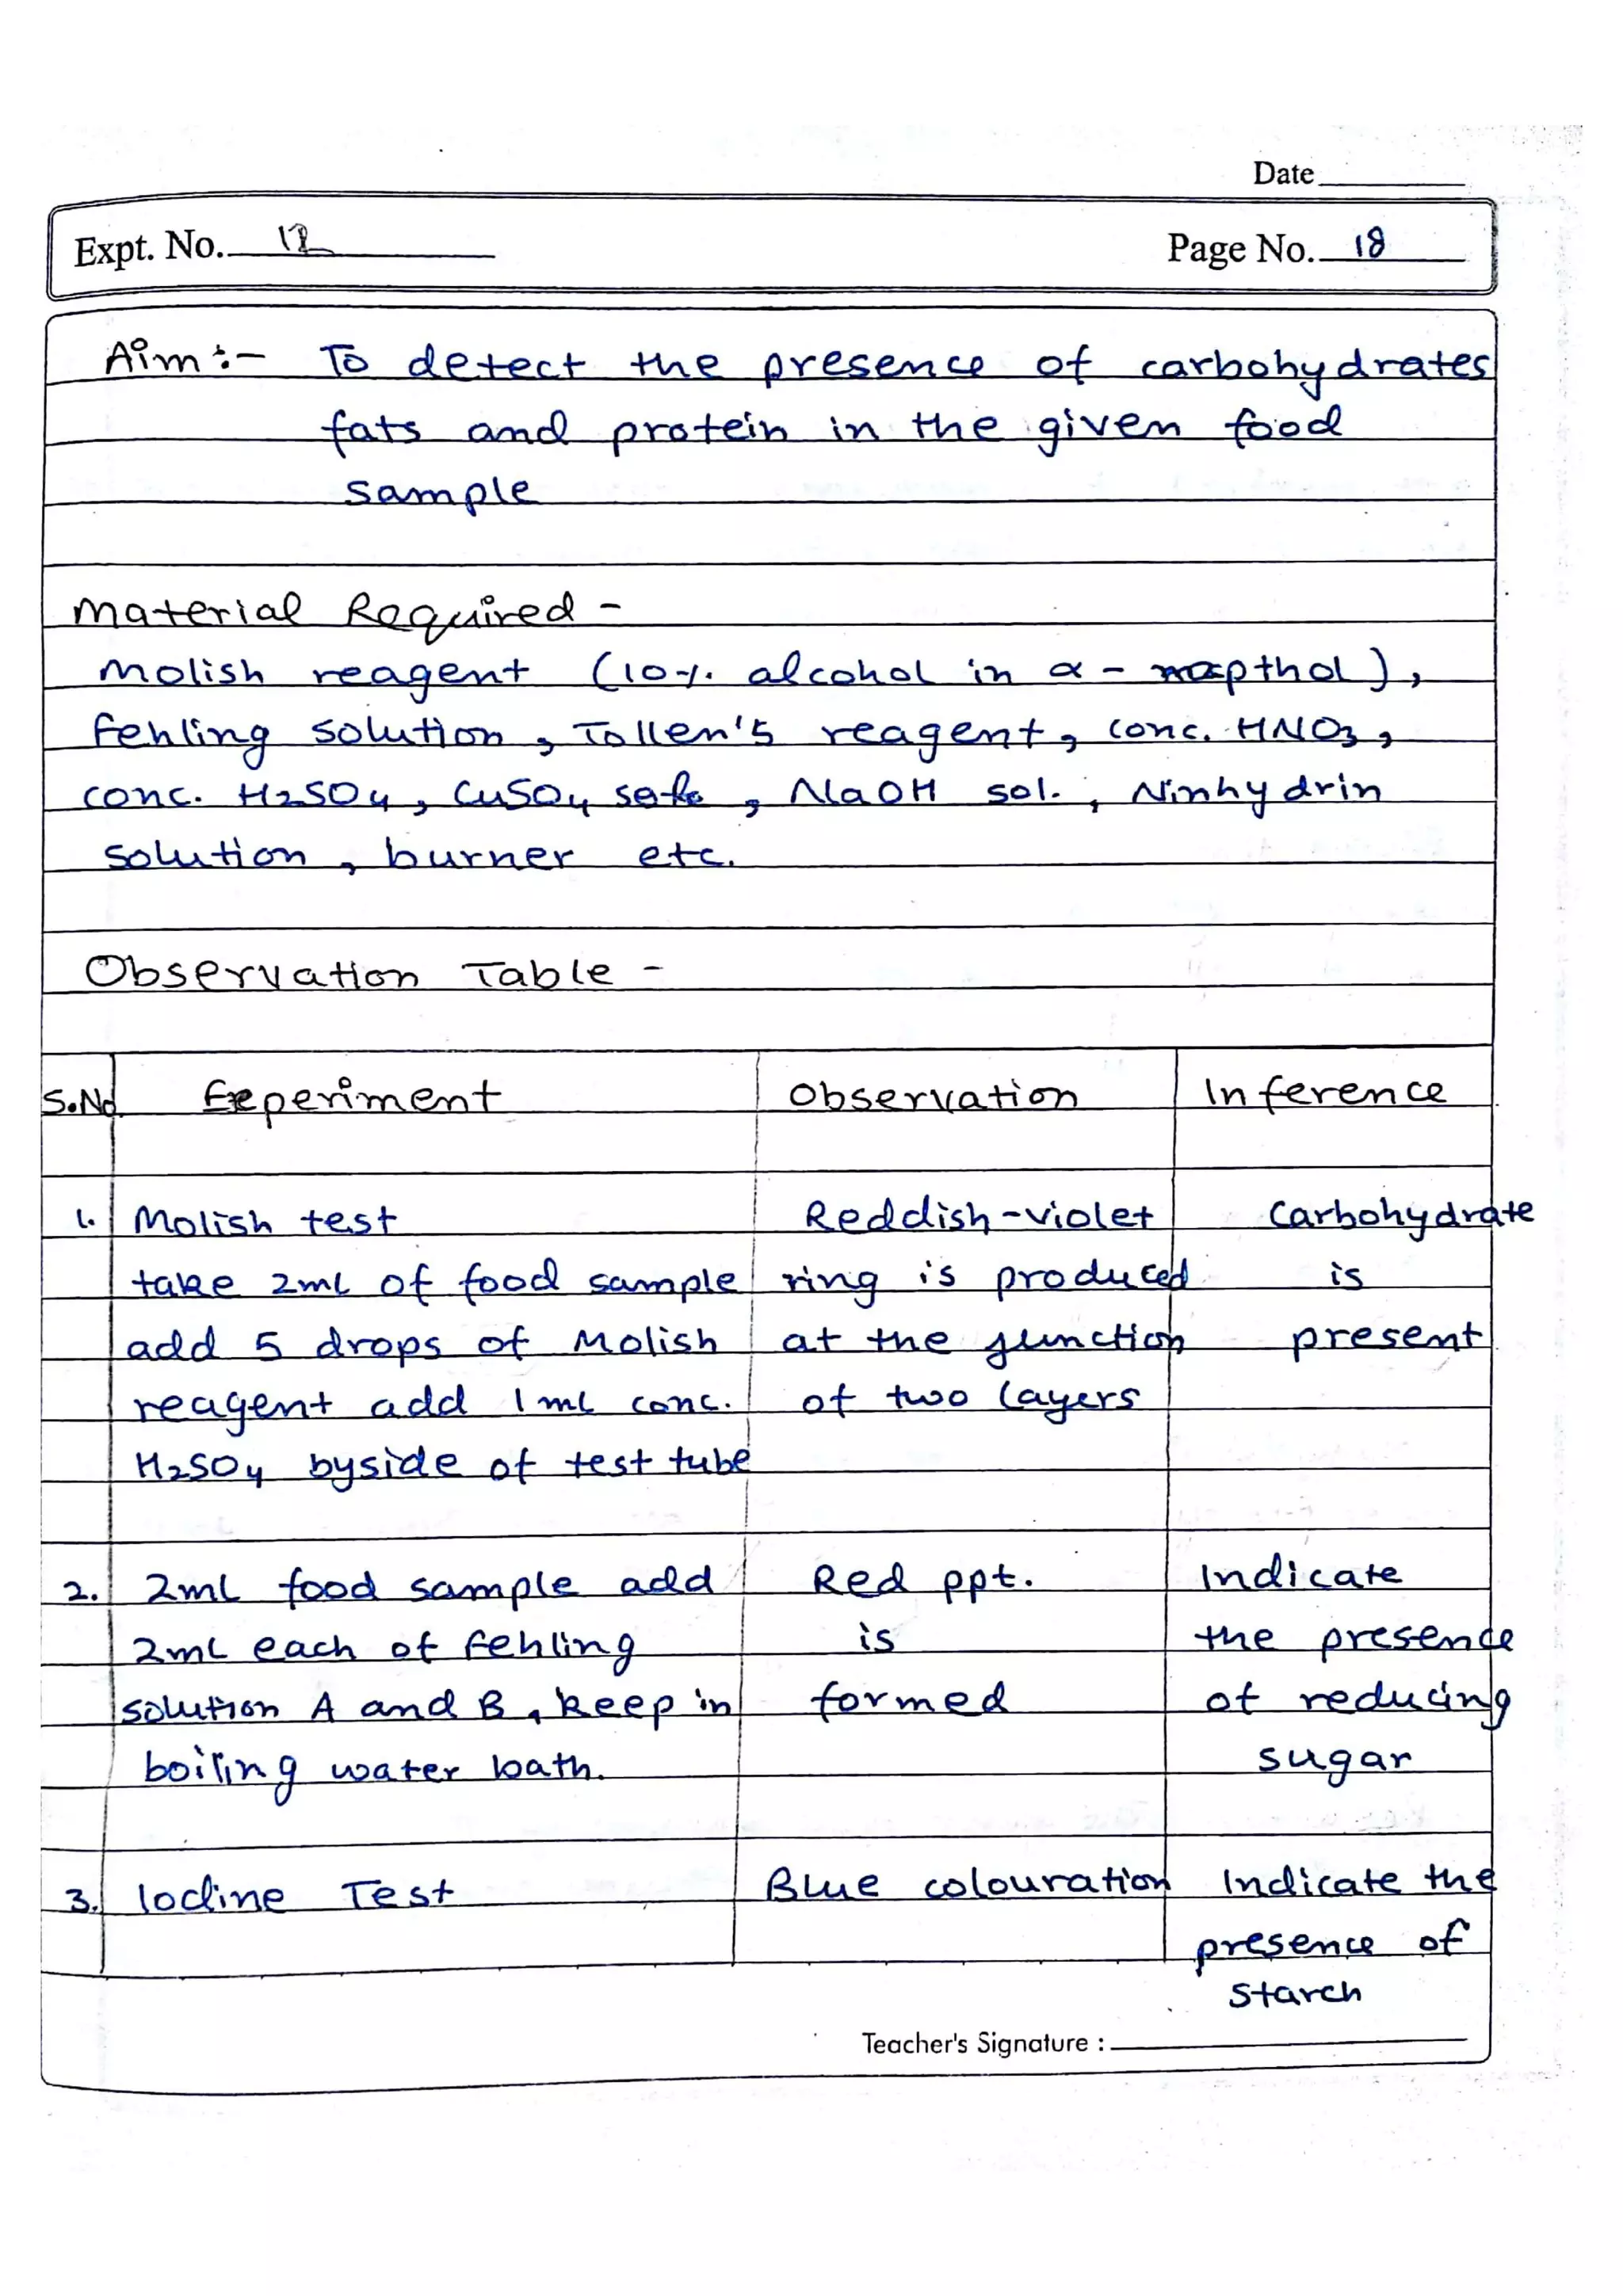 Date
Expt. No. 12
Page No. 18
Aim:- To detect the presence of carbohydrates
fats and protein in the given food
sample
Material Required -
Molish reagent (10% alcohol in α-napthol),
fehling solution, Tollen's reagent, conc. HNO3,
conc. H2SO4, CuSO4, NaOH sol., Ninhydrin
solution, burner etc.
Observation Table -
S.No Experiment Observation Inference
1. Molish test Reddish-violet Carbohydrate
take 2ml of food sample ring is produced is
add 5 drops of Molish at the junction present
reagent add 1ml conc. of two layers
H2SO4 byside of test tube
2. 2ml food sample add Red ppt. Indicate
2ml each of fehling is the presence
solution A and B, keep in formed of reducing
boiling water bath. sugar
3. Iodine Test Blue colouration Indicate the
presence of
starch
Teacher's Signature :